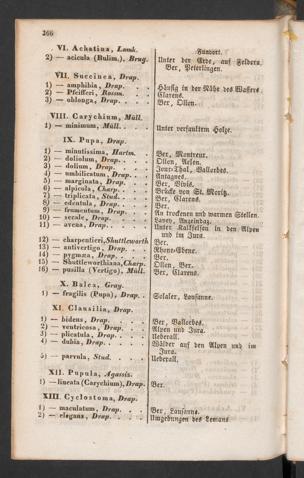 366
VI. Achatina, Lamk. Fundort.
2) — acicula (Bulim.), Brug. Unter der Erde, auf Feldern. Ber, Peterlingen.
VII. Succinea, Drap.
1) — amphibia, Drap. . . Häufig in der Nähe des Wassers
2) — Pfeifferi, Rossm. . . Glarens.
3) — oblonga, Drap. . . Ber, Ollen.
VIII. Carychium, Müll.
1) — minimum, Müll. . . Unter verfaultem Holze.
IX. Pupa, Drap.
1) — minutissima, Hartm. . Ber, Montreux.
2) — doliolum, Drap. . . Ollen, Aelen.
3) — dolium, Drap. . . . Jour-Thal, Vallorbes.
4) — umbilicatum, Drap. .
5) — marginata, Drap. . . Ber, Vivis.
6) — alpicola, Charp. . . Brücke von St. Moritz.
7) — triplicata, Stud. . . Ber, Clarens.
8) — edentula, Drap. . . Ber.
9) — frumentum, Drap. . . An trockenen und warmen Stellen.
10) — secale, Drap. . . .
11) — avena, Drap. . . . Unter Kalkfelsen in den Alpen
und im Jura.
12) — charpentieri, Shuttleworth Ber.
13) — antivertigo, Drap. . Rhone-Ebene.
14) — pygmæa, Drap. . . Ber.
15) — Shuttleworthiana, Charp. Ollen, Ber.
16) — pusilla (Vertigo), Müll. Ber, Clarens.
X. Balea, Gray.
1) — fragilis (Pupa), Drap. . Solalex, Lausanne.
XI. Clausilia, Drap.
1) — bidens, Drap. . . . Ber, Vallorbes.
2) — ventricosa, Drap. . . Alpen und Jura.
3) — plicatula, Drap. . . Ueberall.
4) — dubia, Drap. . . . Wälder auf den Alpen und im
Jura.
5) — parvula, Stud. . . . Ueberall.
XII. Pupula, Agassiz.
1) — lineata (Carychium), Drap. Ber.
XIII. Cyclostoma, Drap.
1) — maculatum, Drap. . . Ber, Lausanne.
2) — elegans, Drap. . . . Umgebungen des Lemans